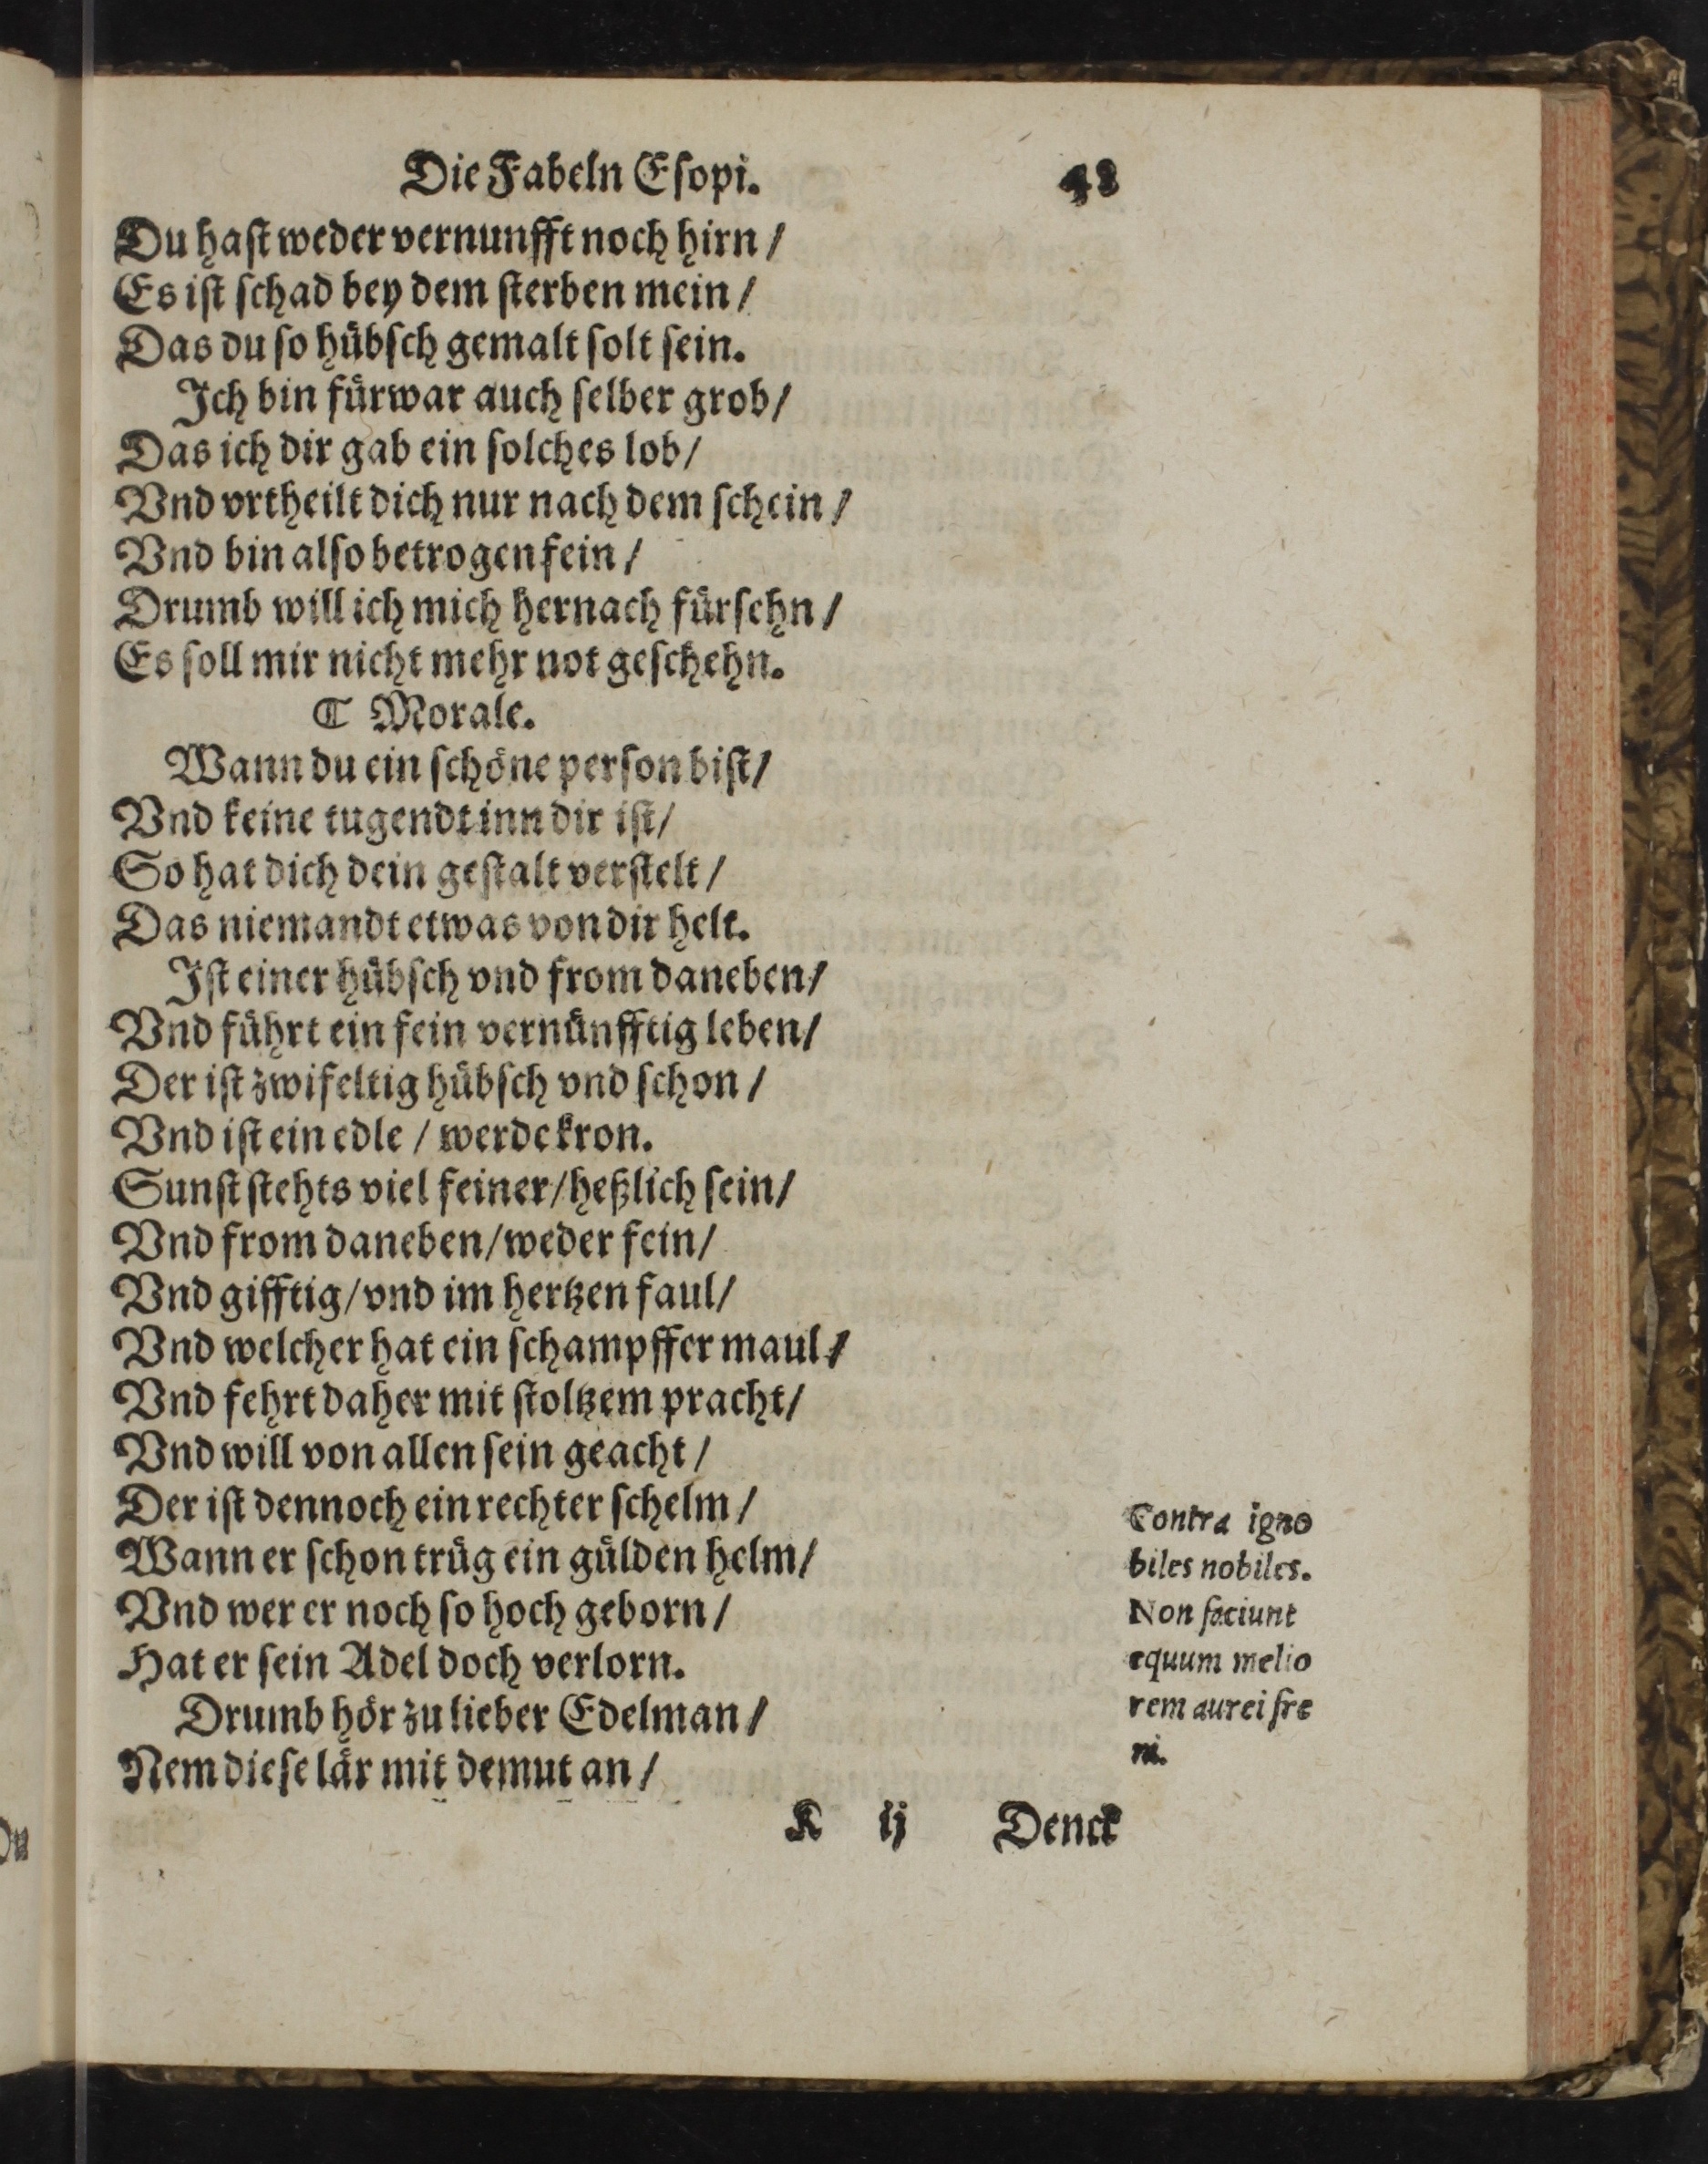 Die Fabeln Eſopi. 48
Du haſt weder vernunfft noch hirn /
Es iſt ſchad bey dem ſterben mein /
Das du ſo hübſch gemalt ſolt ſein.
Jch bin fürwar auch ſelber grob /
Das ich dir gab ein ſolches lob /
Vnd vrtheilt dich nur nach dem ſchein /
Vnd bin alſo betrogen fein /
Drumb will ich mich hernach fürſehn /
Es ſoll mir nicht mehr not geſchehn.
❡ Morale.
Wann du ein ſchöne perſon biſt /
Vnd keine tugendt inn dir iſt /
So hat dich dein geſtalt verſtelt /
Das niemandt etwas von dir helt.
Jſt einer hübſch vnd from daneben /
Vnd führt ein fein vernünfftig leben /
Der iſt zwifeltig hübſch vnd ſchon /
Vnd iſt ein edle / werde kron.
Sunſt ſtehts viel feiner / heßlich ſein /
Vnd from daneben / weder fein /
Vnd gifftig / vnd im hertzen faul /
Vnd welcher hat ein ſchampffer maul /
Vnd fehrt daher mit ſtoltzem pracht /
Vnd will von allen ſein geacht /
Der iſt dennoch ein rechter ſchelm /
Wann er ſchon trüg ein gülden helm /
Vnd wer er noch ſo hoch geborn /
Hat er ſein Adel doch verlorn.
Drumb hör zu lieber Edelman /
Nem dieſe lär mit demut an /
Contra igno
biles nobiles.
Non faciunt
equum melio
rem aurei fre
ni.
K ij Denck